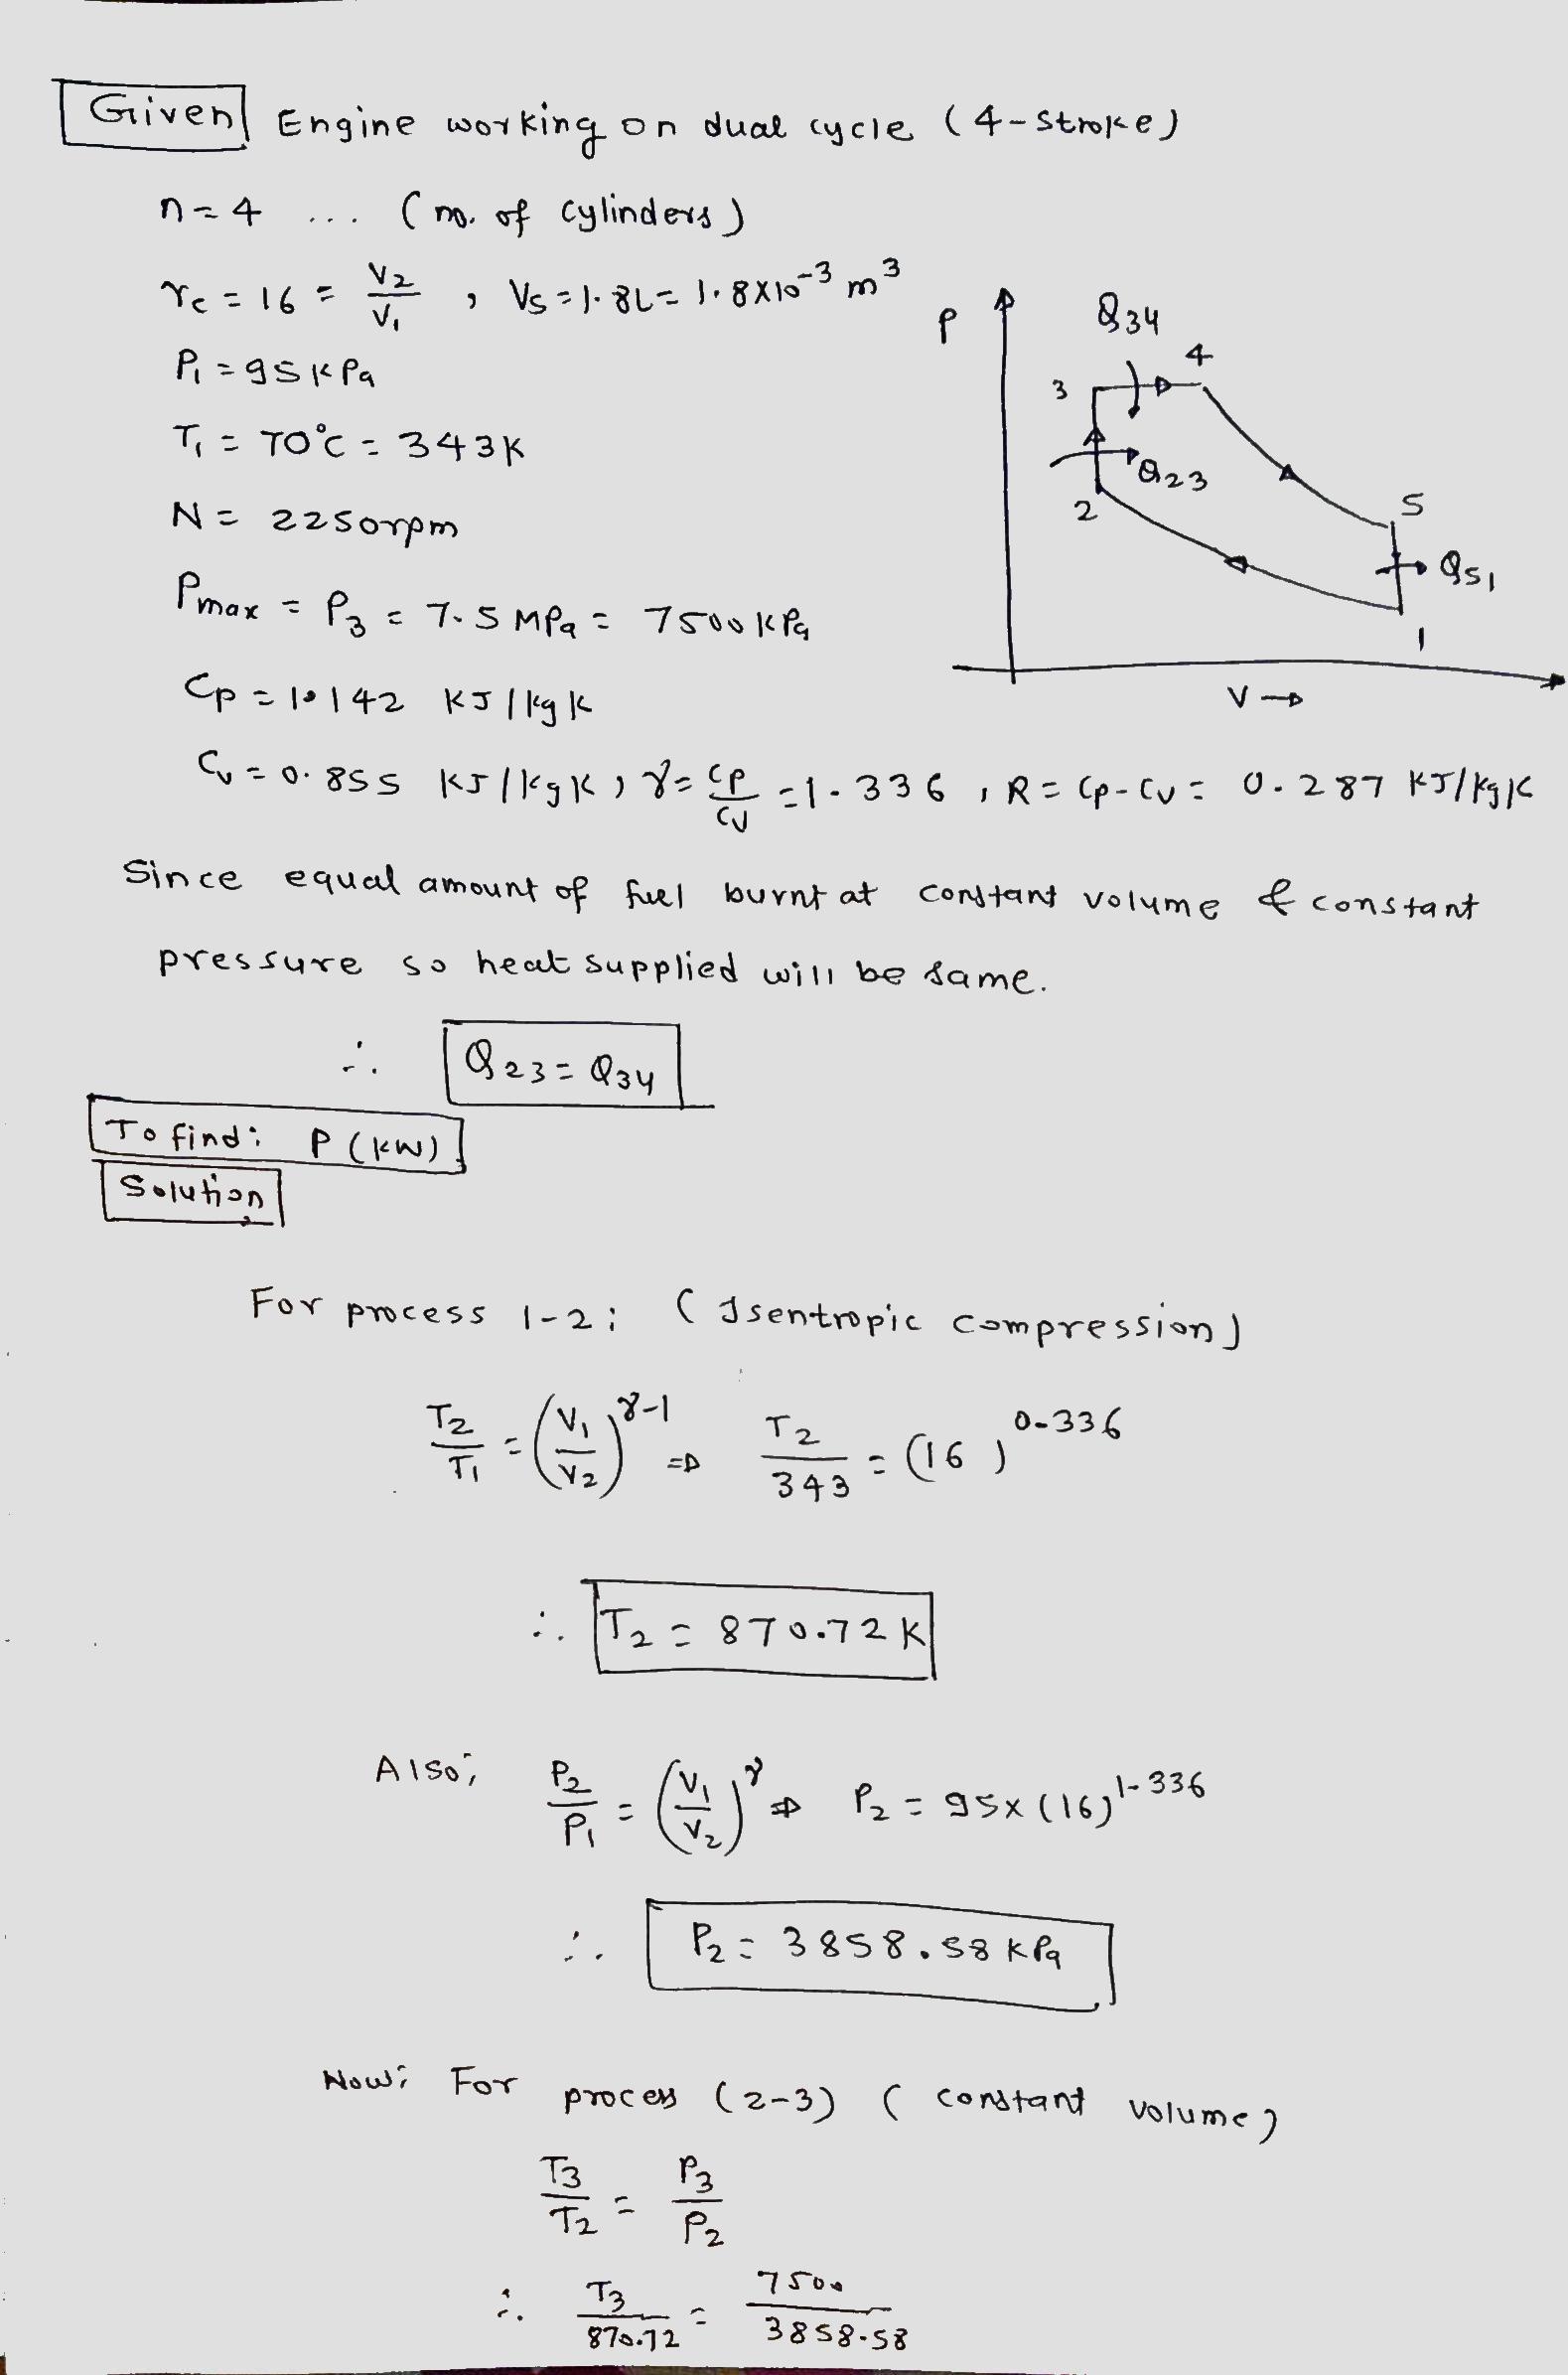 Given Engine working on dual cycle (4-stroke)
n=4 ... (no. of cylinders)
rc = 16 = V2/V1 , Vs = 1.8L = 1.8×10⁻³ m³
P1 = 95 kPa
T1 = 70°C = 343K
N = 2250rpm
Pmax = P3 = 7.5 MPa = 7500 kPa
Cp = 1.142 KJ/kgK
Cv = 0.855 KJ/kgK, γ = Cp/Cv = 1.336, R = Cp-Cv = 0.287 KJ/kgK
P
Q34
3
4
Q23
2
5
Q51
1
V →
Since equal amount of fuel burnt at constant volume & constant
pressure so heat supplied will be same.
∴ Q23 = Q34
To find: P (KW)
Solution
For process 1-2: (Isentropic compression)
T2/T1 = (V1/V2)^γ-1 ⇒ T2/343 = (16)^0.336
∴ T2 = 870.72 K
Also; P2/P1 = (V1/V2)^γ ⇒ P2 = 95×(16)^1.336
∴ P2 = 3858.58 kPa
Now; For process (2-3) (constant volume)
T3/T2 = P3/P2
∴ T3/870.72 = 7500/3858.58